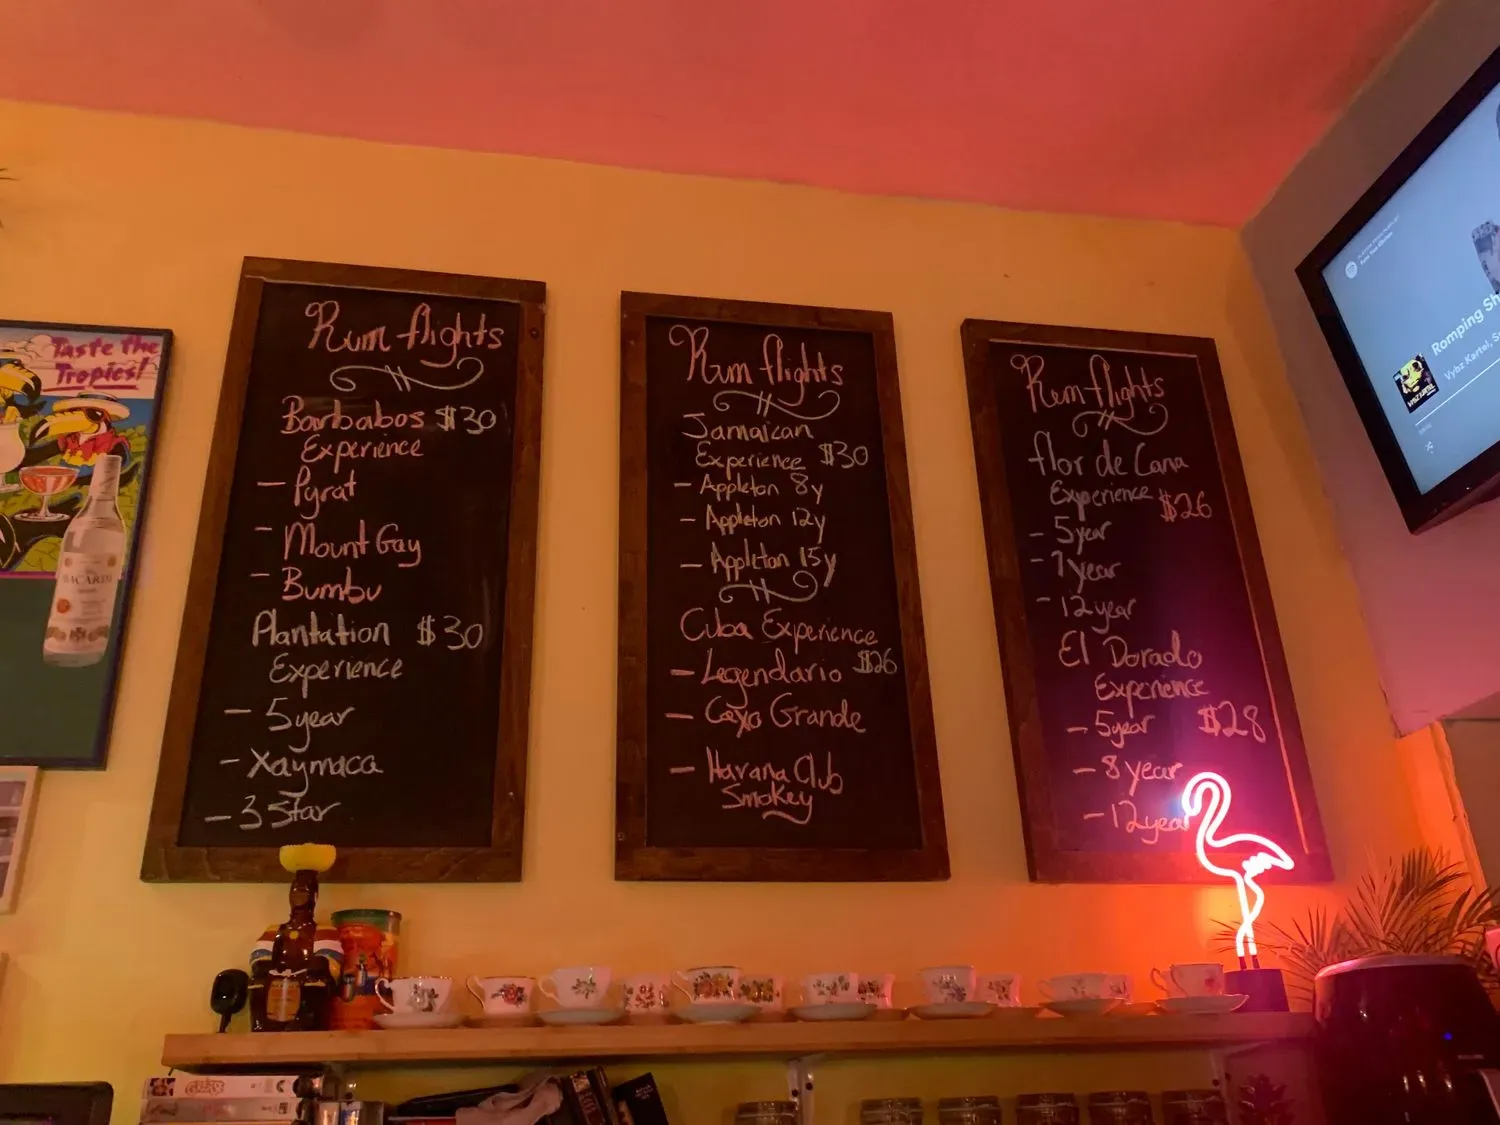 Taste the
Tropics!
BACARDI
Rum flights
Barbabos $30
Experience
- Pyrat
- Mount Gay
- Bumbu
Plantation $30
Experience
- 5 year
- Xaymaca
- 3 Star
Rum flights
Jamaican
Experience $30
- Appleton 8y
- Appleton 12y
- Appleton 15y
Cuba Experience
- Legendario $26
- Cayo Grande
- Havana Club
Smokey
Rum flights
flor de Cana
Experience $26
- 5 year
- 7 year
- 12 year
El Dorado
Experience
- 5 year $28
- 8 year
- 12 year
Romping Sh
Vybz Kartel, S